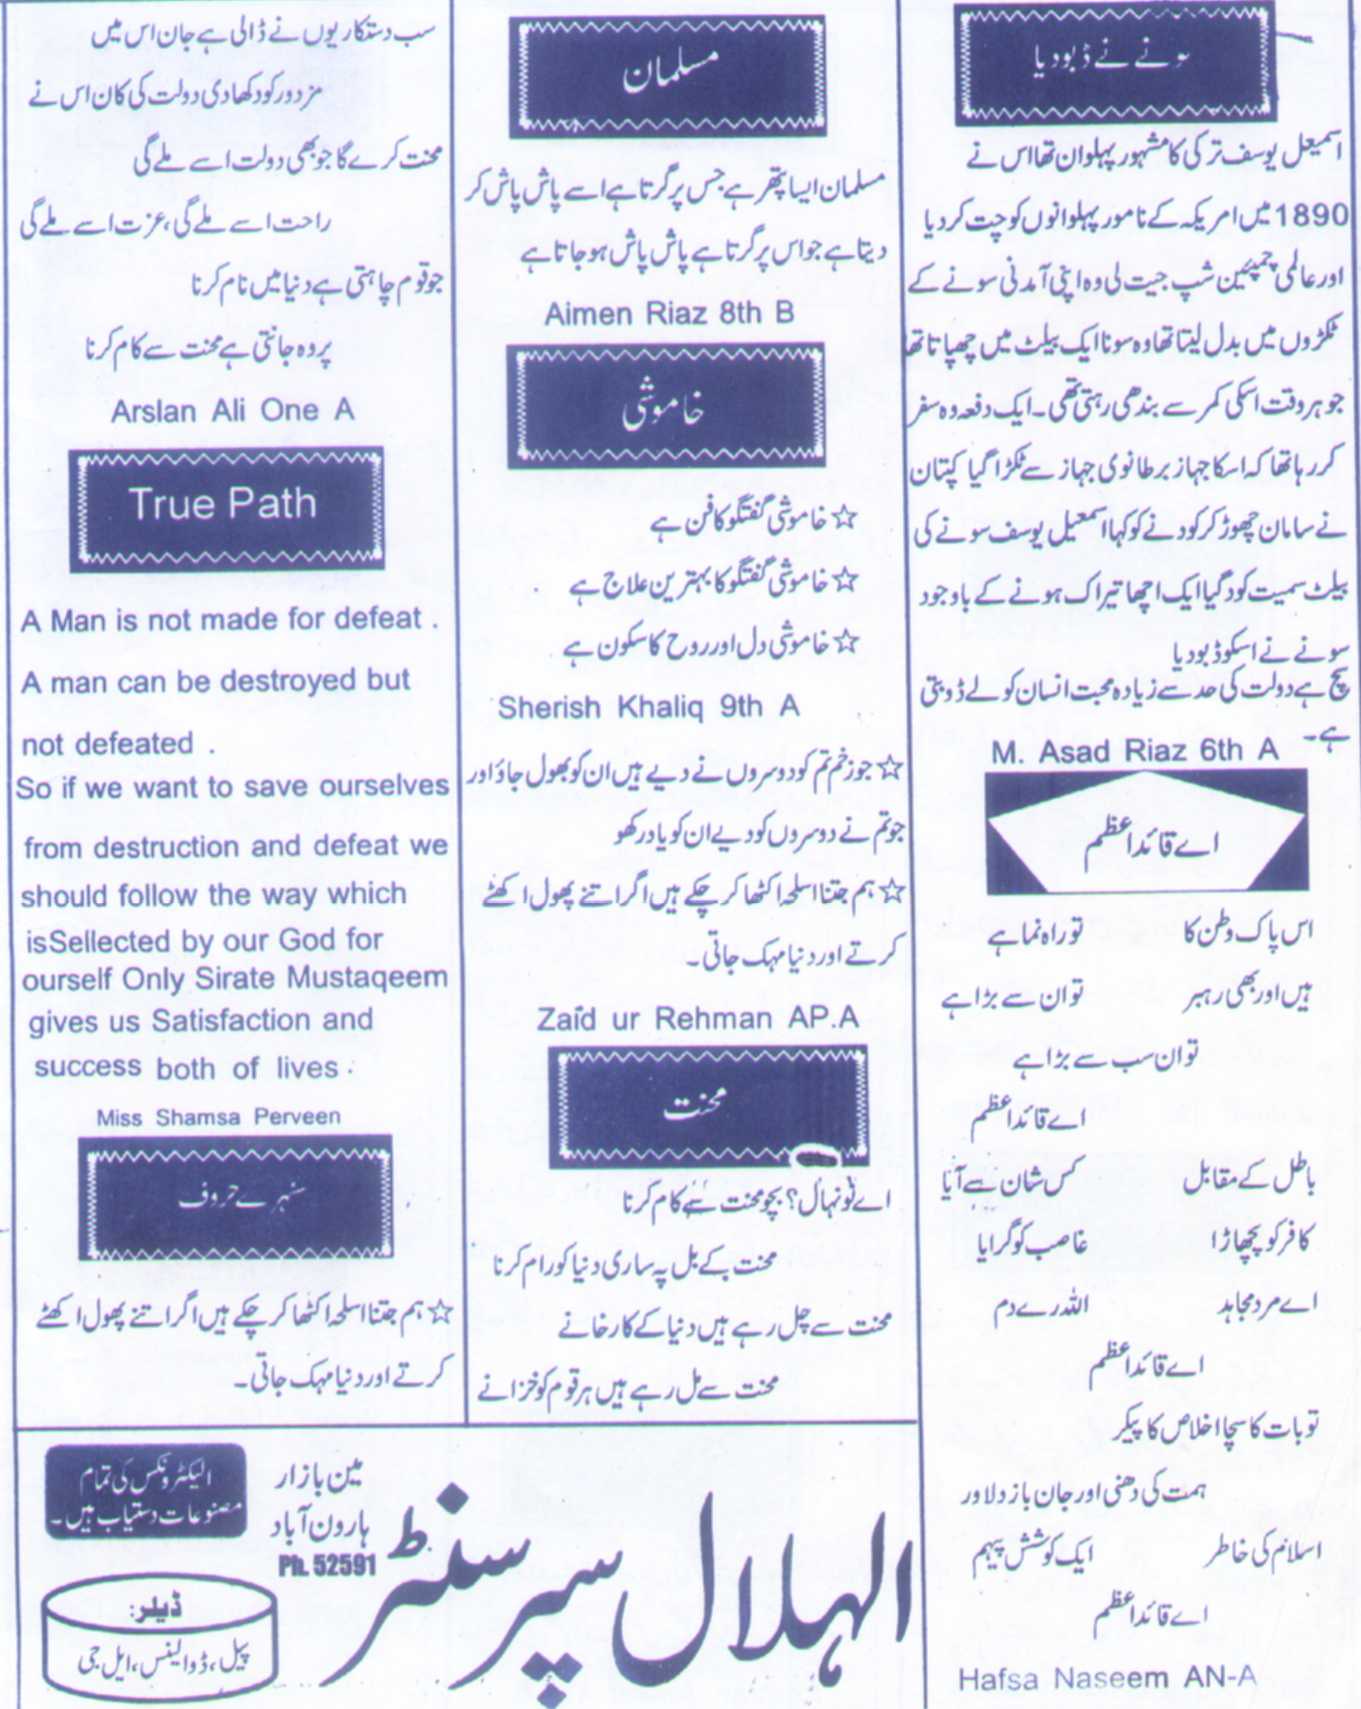 سونے نے ڈبودیا
اسمیعل یوسف ترکی کا مشہور پہلوان تھا اس نے
1890 میں امریکہ کے نامور پہلوانوں کو چت کر دیا
اور عالمی چمپئین شپ جیت لی وہ اپنی آمدنی سونے کے
ٹکڑوں میں بدل لیتا تھا وہ سونا ایک بیلٹ میں چھپاتا تھا
جو ہر وقت اسکی کمر سے بندھی رہتی تھی۔ ایک دفعہ وہ سفر
کر رہا تھا کہ اسکا جہاز برطانوی جہاز سے ٹکڑا گیا کپتان
نے سامان چھوڑ کر کودنے کو کہا اسمعیل یوسف سونے کی
بیلٹ سمیت کود گیا ایک اچھا تیراک ہونے کے باوجود
سونے نے اسکو ڈبودیا
سچ ہے دولت کی حد سے زیادہ محبت انسان کو لے ڈوبتی
ہے۔
M. Asad Riaz 6th A
اے قائداعظم
اس پاک وطن کا توراہ نما ہے
ہیں اور بھی رہبر تو ان سے بڑا ہے
تو ان سب سے بڑا ہے
اے قائداعظم
باطل کے مقابل کس شان سے آیا
کافر کو پچھاڑا غاصب کو گرایا
اے مرد مجاہد اللہ رے دم
اے قائداعظم
تو بات کا سچا اخلاص کا پیکر
ہمت کی دھنی اور جان باز دلاور
اسلام کی خاطر ایک کوشش پیہم
اے قائداعظم
Hafsa Naseem AN-A
مسلمان
مسلمان ایسا پتھر ہے جس پر گرتا ہے اسے پاش پاش کر
دیتا ہے جو اس پر گرتا ہے پاش پاش ہو جاتا ہے
Aimen Riaz 8th B
خاموشی
☆ خاموشی گفتگو کا فن ہے
☆ خاموشی گفتگو کا بہترین علاج ہے
☆ خاموشی دل اور روح کا سکون ہے
Sherish Khaliq 9th A
☆ جو زخم تم کو دوسروں نے دیے ہیں ان کو بھول جاؤ اور
جو تم نے دوسروں کو دیے ان کو یاد رکھو
☆ ہم جتنا اسلحہ اکٹھا کر چکے ہیں اگر اتنے پھول اکھٹے
کرتے اور دنیا مہک جاتی۔
Zaid ur Rehman AP.A
محنت
اے نونہال؟ بچو محنت سے کام کرنا
محنت کے بل پہ ساری دنیا کو رام کرنا
محنت سے چل رہے ہیں دنیا کے کارخانے
محنت سے مل رہے ہیں ہر قوم کو خزانے
سب دستکاریوں نے ڈالی ہے جان اس میں
مزدور کو دکھا دی دولت کی کان اس نے
محنت کرے گا جو بھی دولت اسے ملے گی
راحت اسے ملے گی، عزت اسے ملے گی
جو قوم چاہتی ہے دنیا میں نام کرنا
پر وہ جانتی ہے محنت سے کام کرنا
Arslan Ali One A
True Path
A Man is not made for defeat .
A man can be destroyed but
not defeated .
So if we want to save ourselves
from destruction and defeat we
should follow the way which
isSellected by our God for
ourself Only Sirate Mustaqeem
gives us Satisfaction and
success both of lives .
Miss Shamsa Perveen
سنہرے حروف
☆ ہم جتنا اسلحہ اکٹھا کر چکے ہیں اگر اتنے پھول اکھٹے
کرتے اور دنیا مہک جاتی۔
الہلال سپر سنٹر
مین بازار
ہارون آباد
Ph. 52591
الیکٹرونکس کی تمام
مصنوعات دستیاب ہیں۔
ڈیلر:
پیل، ڈوالینس، ایل جی